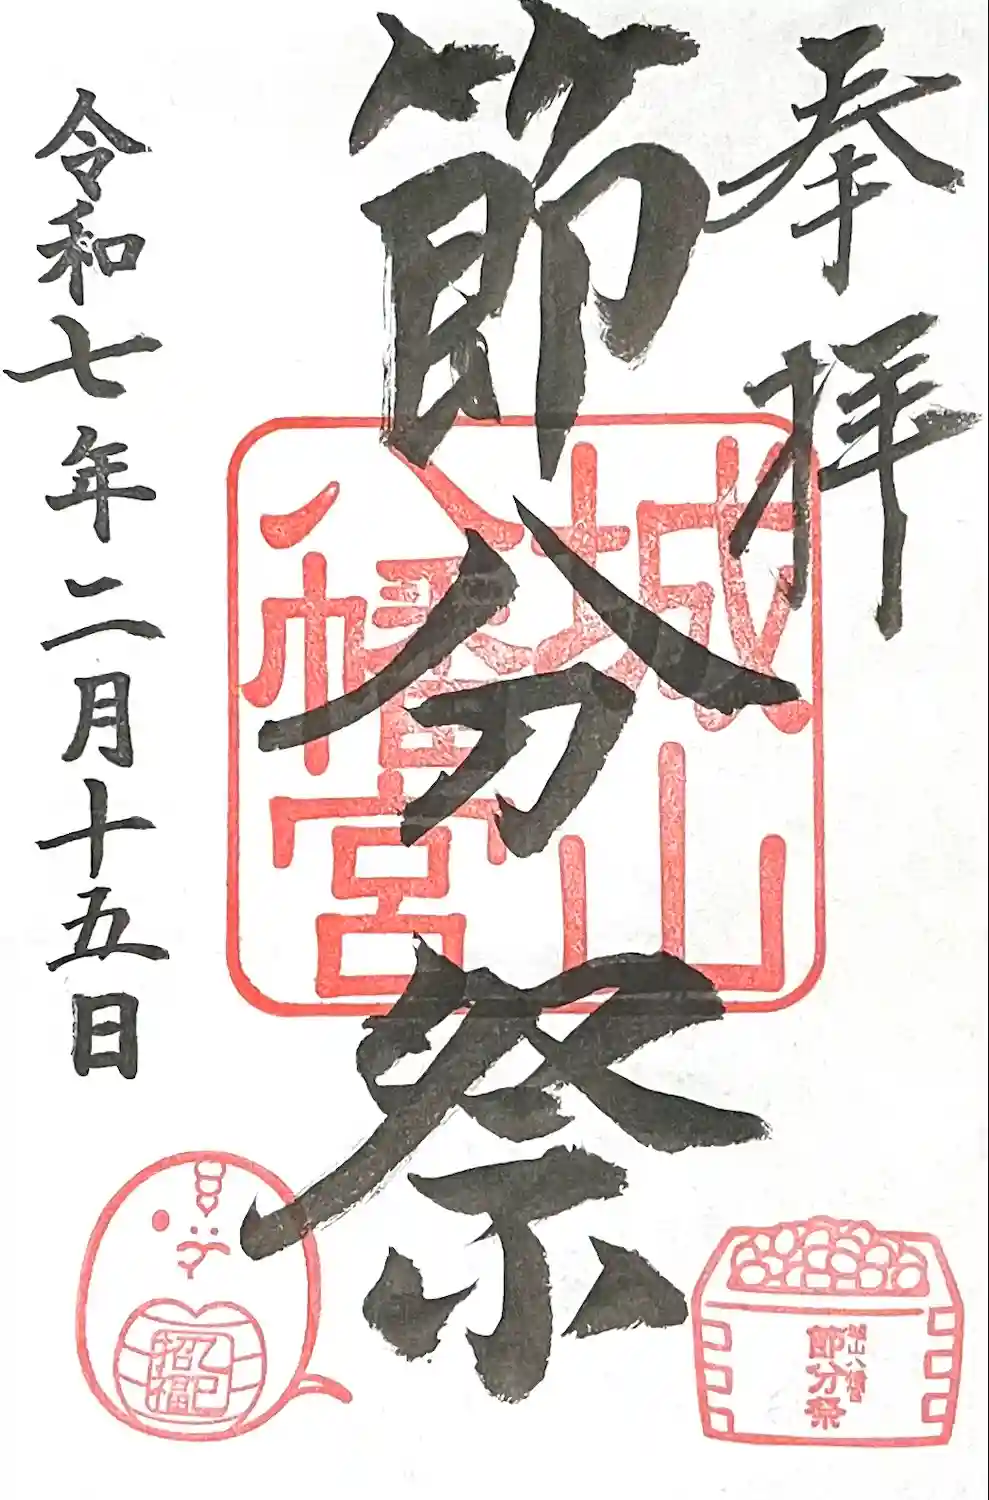 奉拝
節分祭
城山
八幡宮
令和七年二月十五日
乙巳
招福
城山八幡宮
節分祭